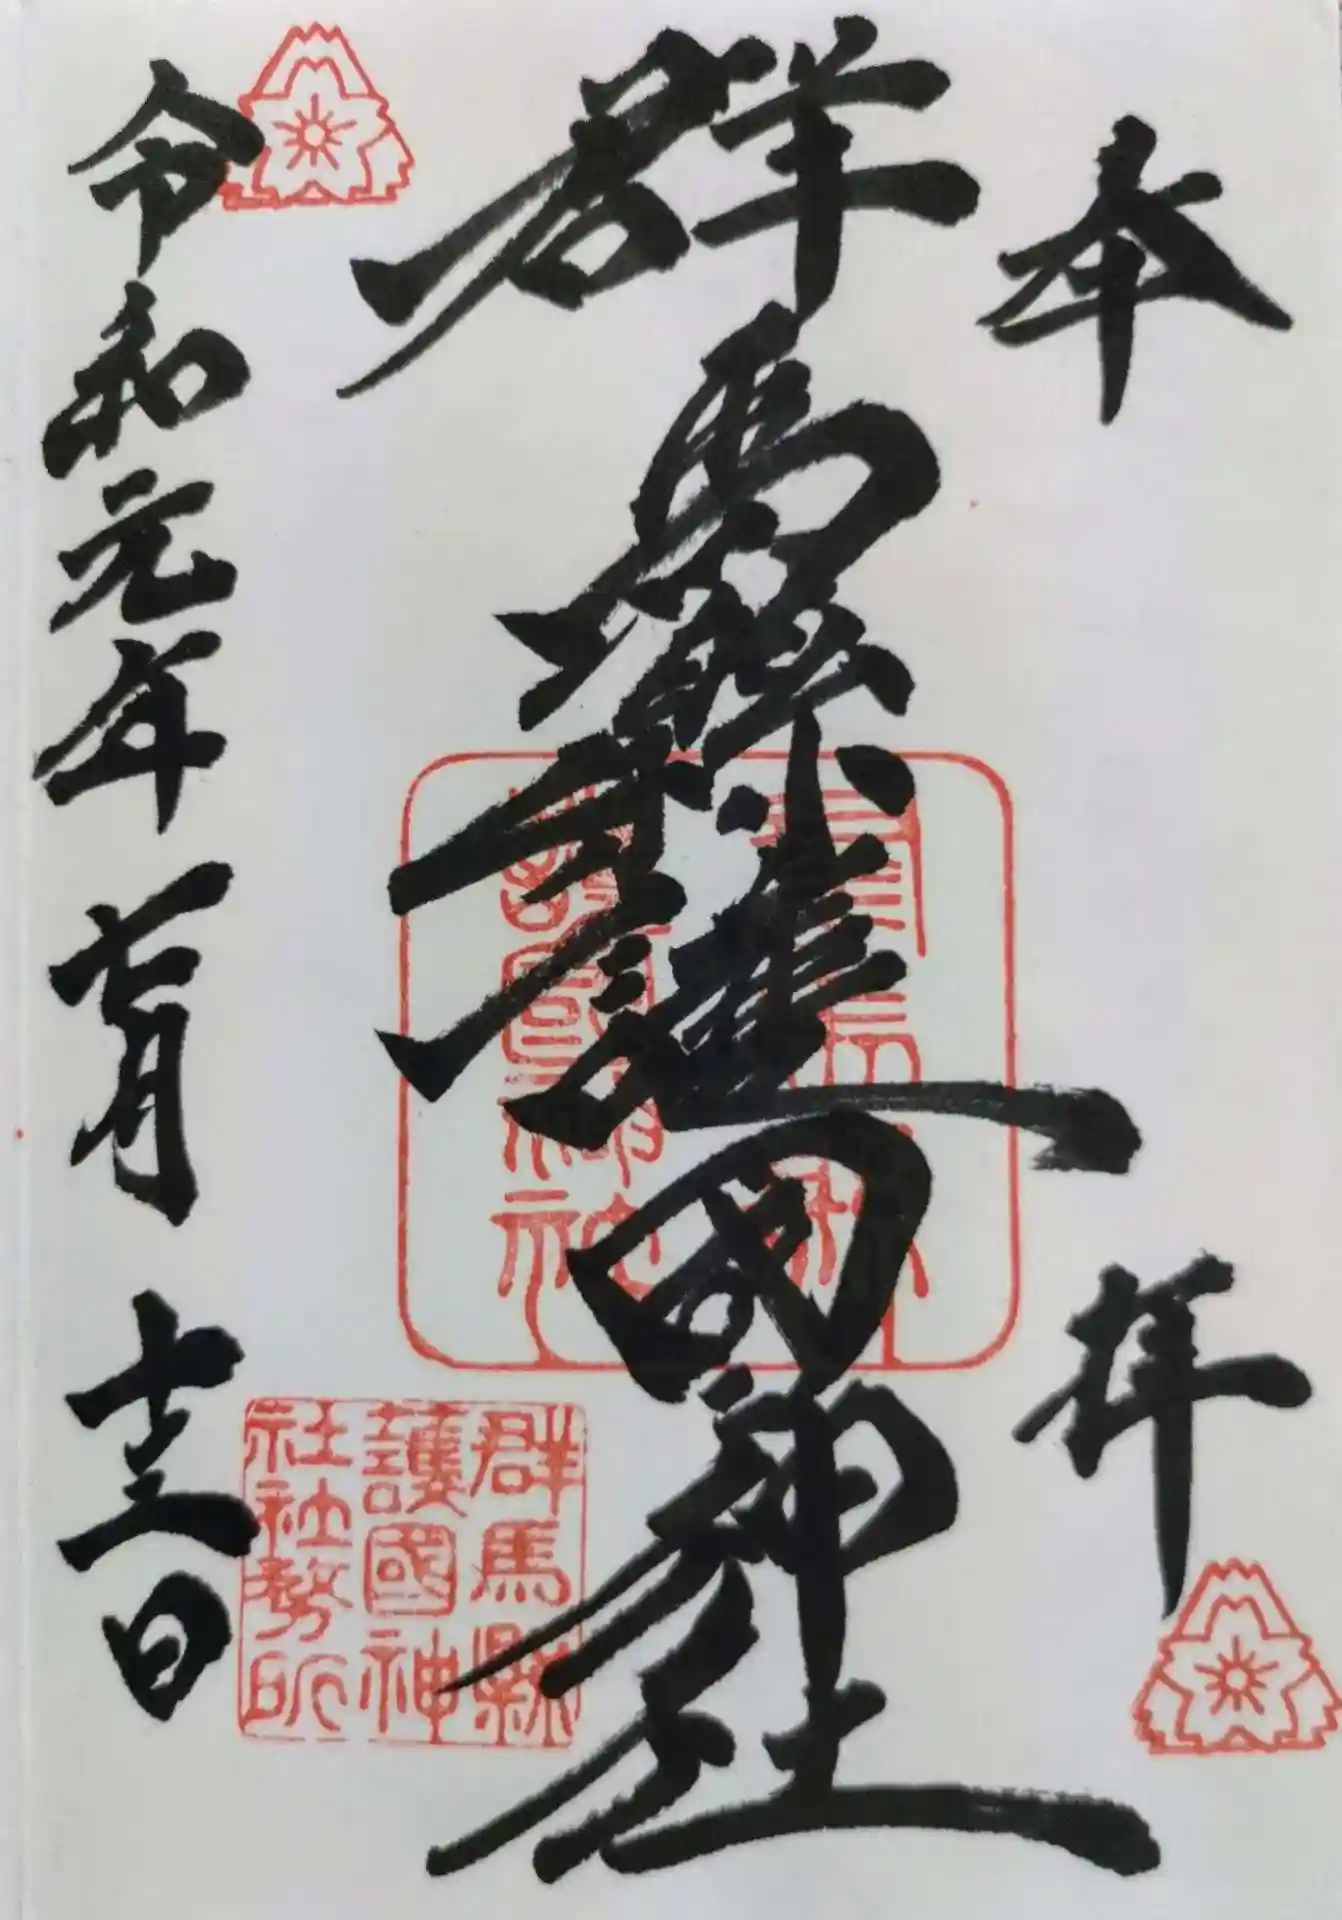 奉拝
群馬縣護國神社
群馬縣
護國神社
群馬縣
護國神
社社務所
令和元年七月十三日